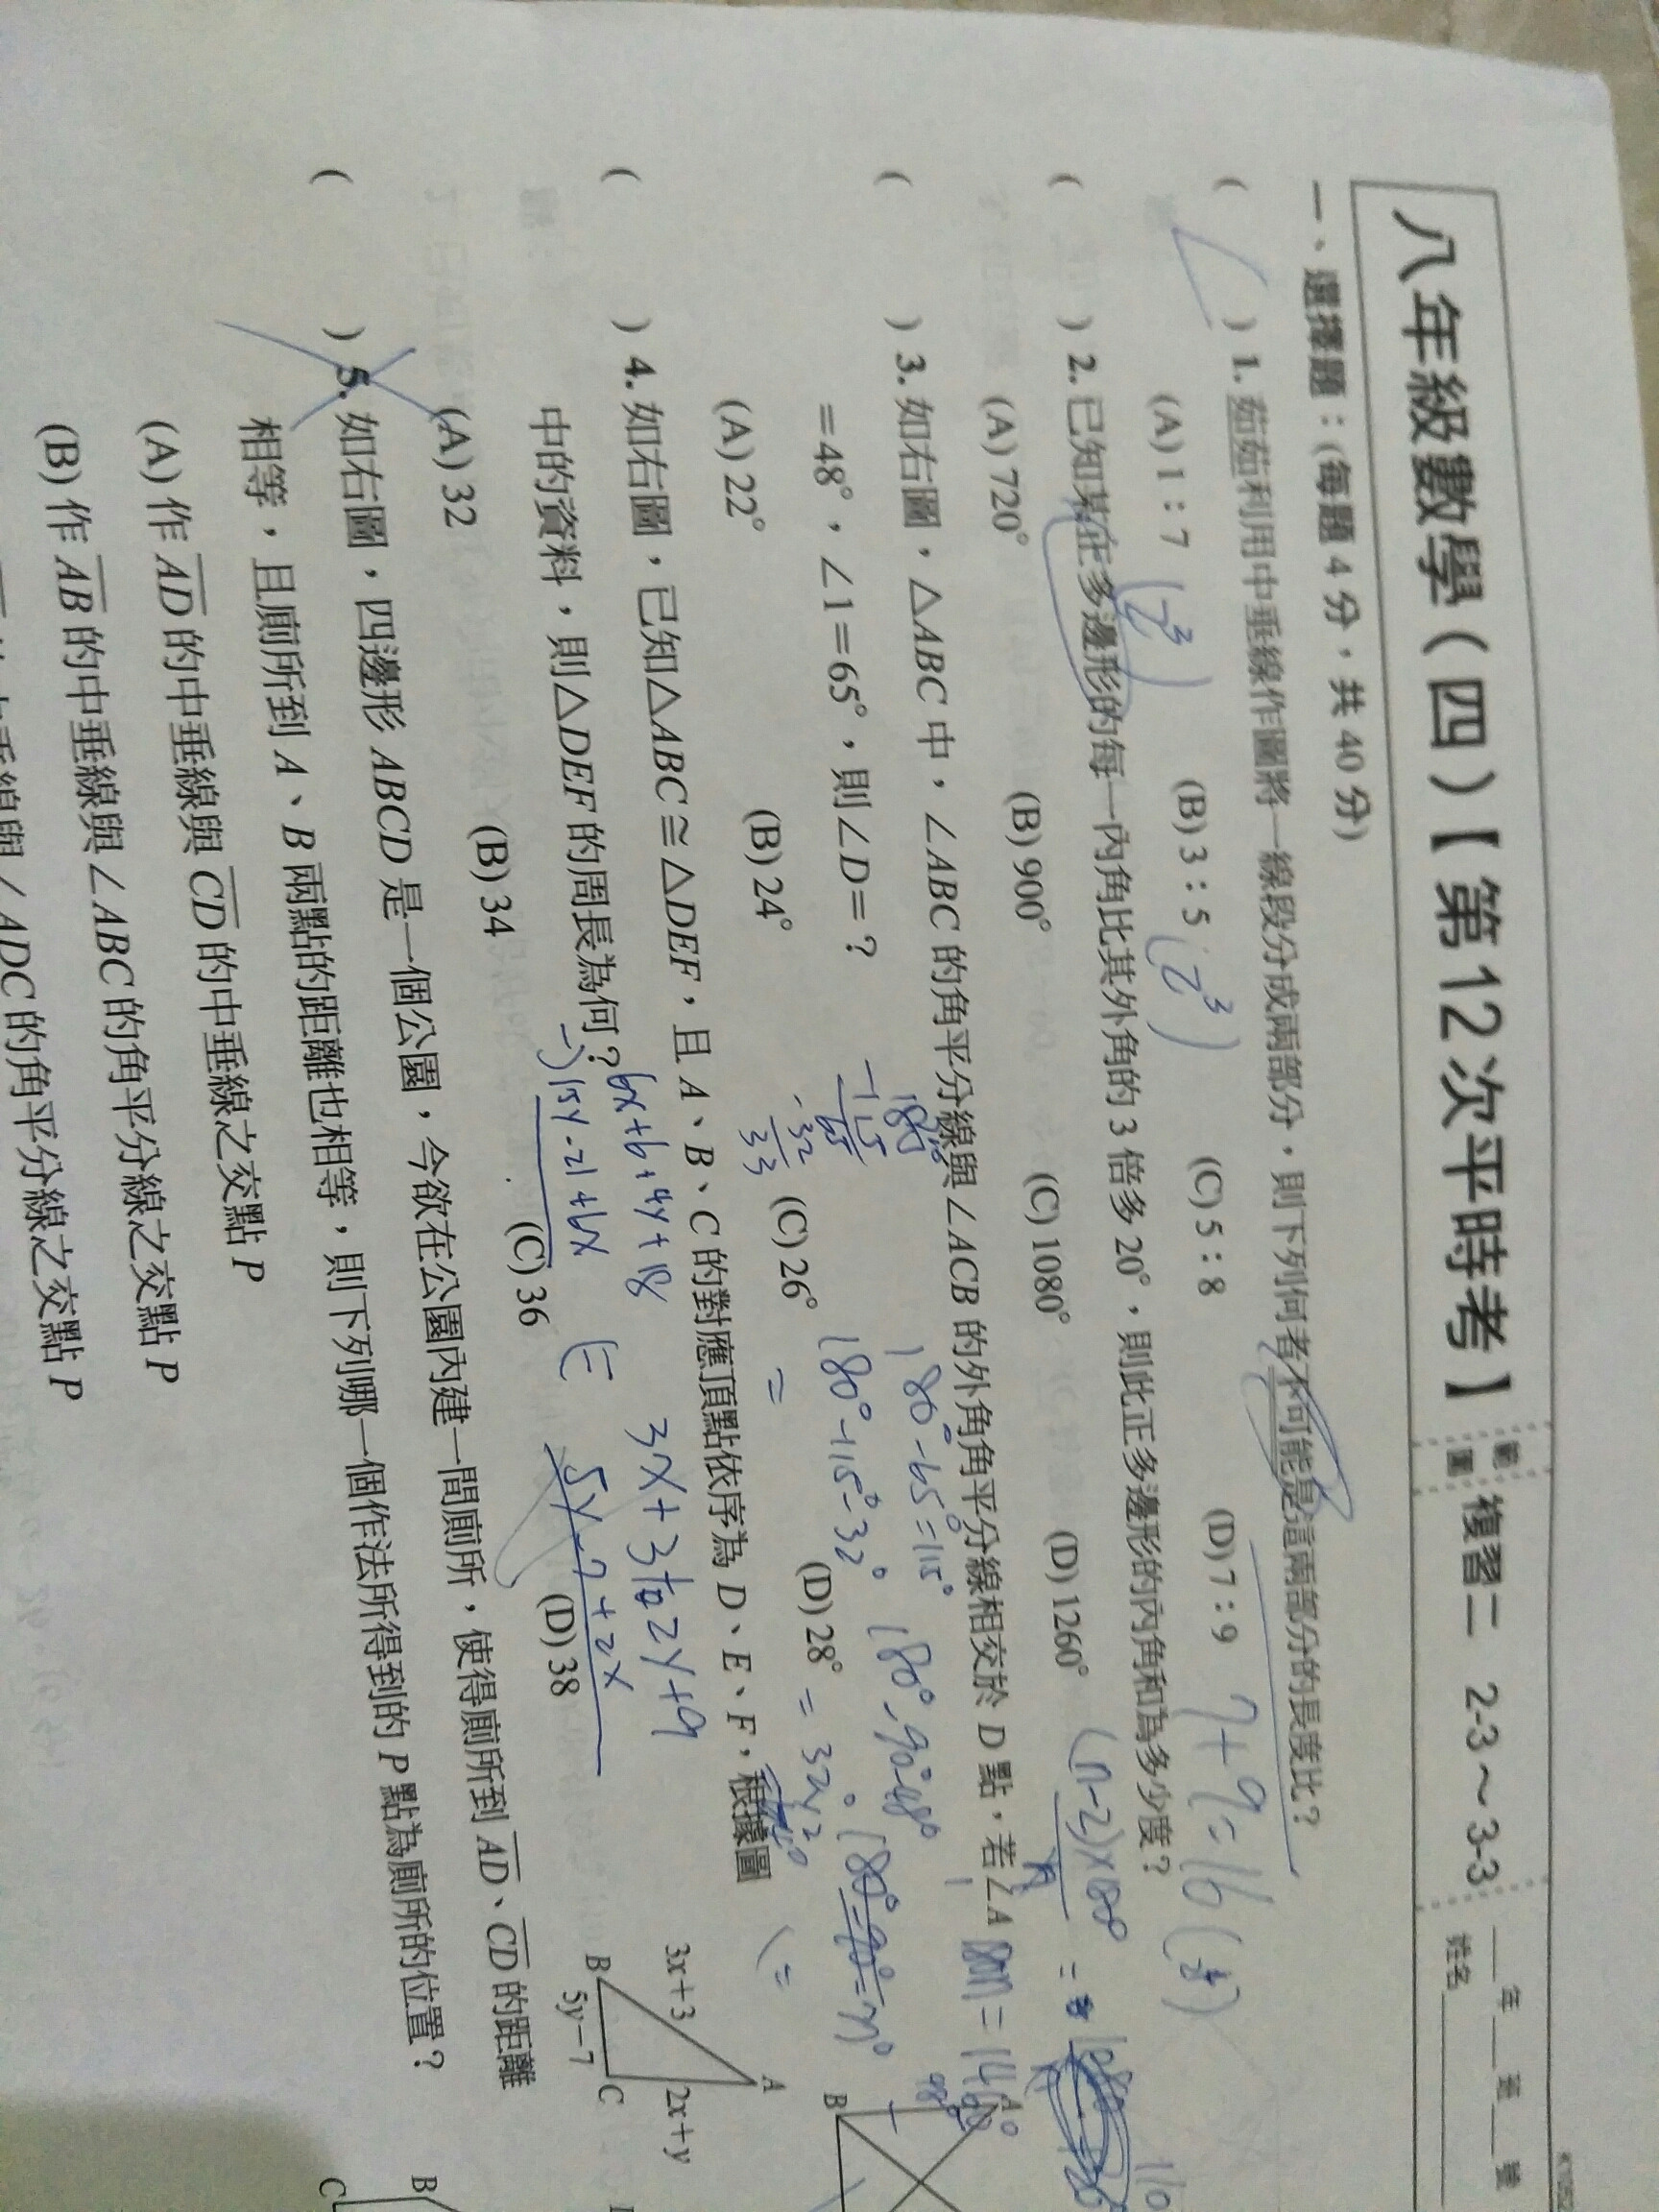 八年級數學（四）【第12次平時考】
範圍
複習二 2-3～3-3
年 班 號
姓名
一、選擇題：(每題 4 分，共 40 分)
( ) 1. 茹茹利用中垂線作圖將一線段分成兩部分，則下列何者不可能是這兩部分的長度比？
(A) 1：7 (2³) (B) 3：5 (2³) (C) 5：8 (D) 7：9 7+9=16
( ) 2. 已知某正多邊形的每一內角比其外角的 3 倍多 20°，則此正多邊形的內角和為多少度？
(A) 720° (B) 900° (C) 1080° (D) 1260° (n-2)×180°
( ) 3. 如右圖，△ABC 中，∠ABC 的角平分線與∠ACB 的外角角平分線相交於 D 點，若∠A
＝48°，∠1＝65°，則∠D＝？ 180°-65°=115°
180°-115°-32°
(A) 22° (B) 24° (C) 26° (D) 28°
( ) 4. 如右圖，已知△ABC≅△DEF，且 A、B、C 的對應頂點依序為 D、E、F，根據圖
中的資料，則△DEF 的周長為何？
6x+6+4y+18
-) 15y-21+6x
3x+3+2y+9
5y-7+2x
(A) 32 (B) 34 (C) 36 (D) 38
A
3x+3
2x+y
B
C
5y−7
A
B
( ) 5. 如右圖，四邊形 ABCD 是一個公園，今欲在公園內建一間廁所，使得廁所到 AD、CD 的距離
相等，且廁所到 A、B 兩點的距離也相等，則下列哪一個作法所得到的 P 點為廁所的位置？
(A) 作 AD 的中垂線與 CD 的中垂線之交點 P
(B) 作 AB 的中垂線與∠ABC 的角平分線之交點 P
線與∠ADC 的角平分線之交點 P
B
C